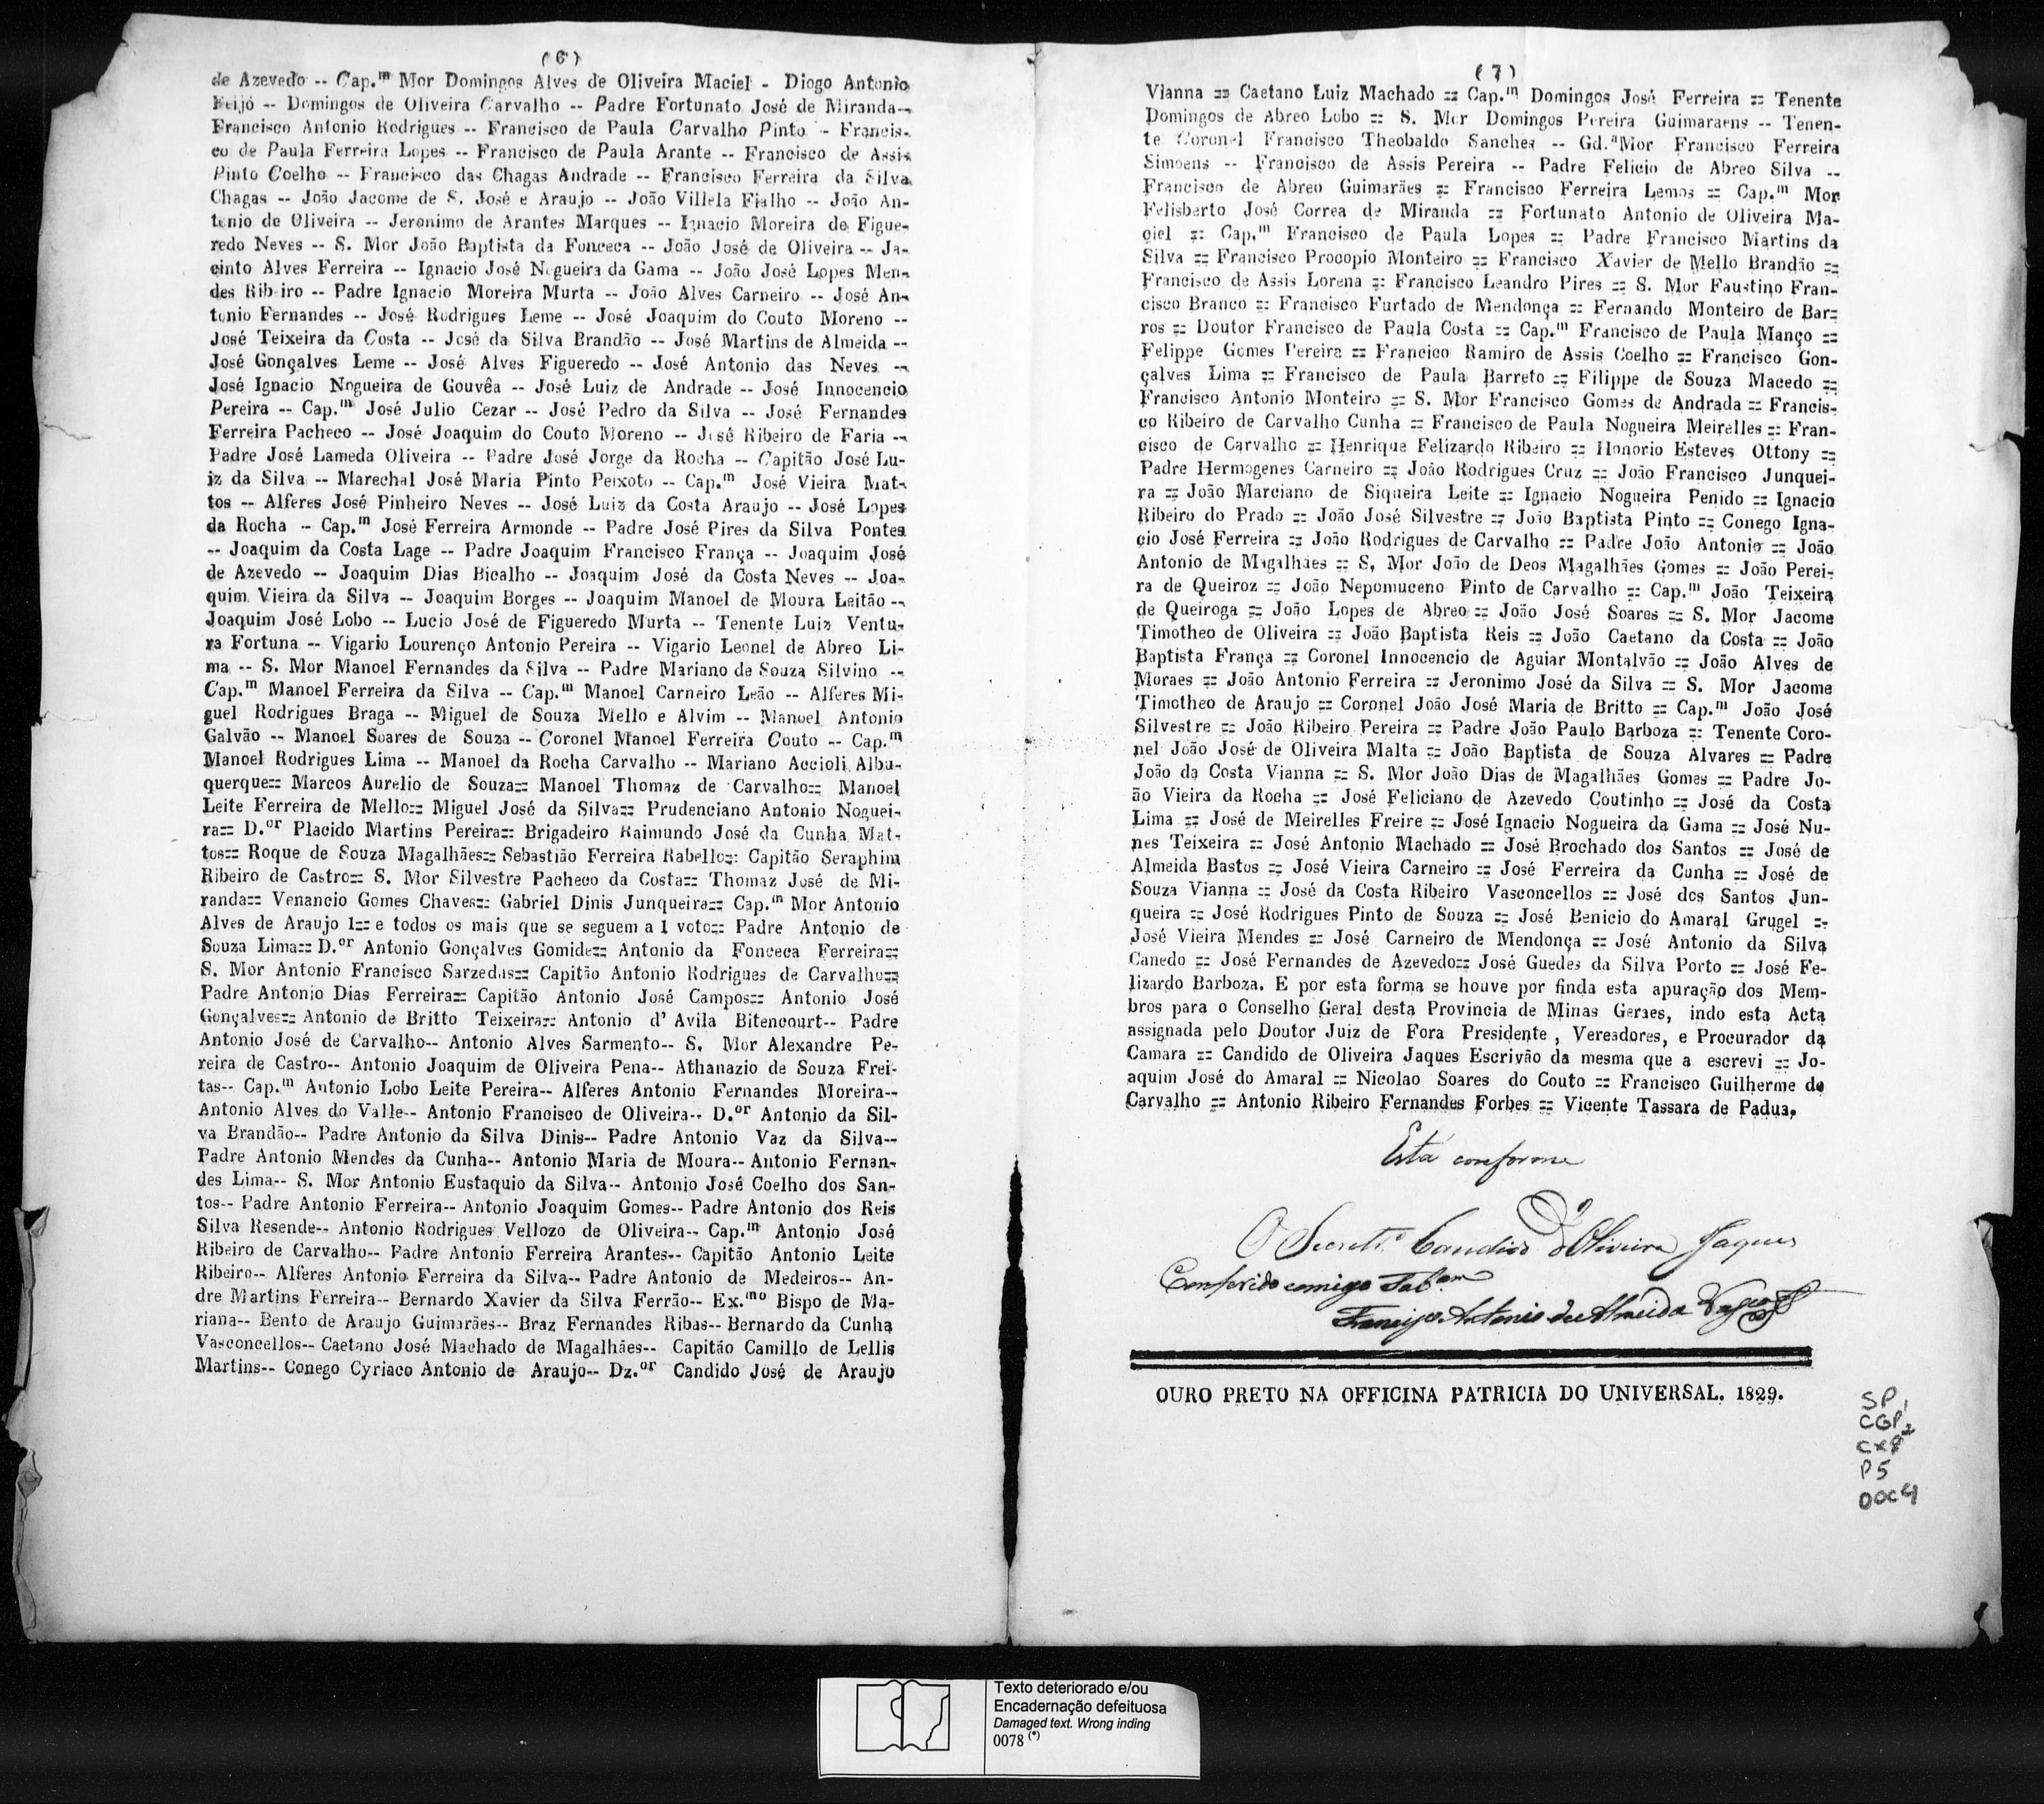 (6)
de Azevedo -- Cap.m Mor Domingos Alves de Oliveira Maciel - Diogo Antonio
Feijó -- Domingos de Oliveira Carvalho -- Padre Fortunato José de Miranda--
Francisco Antonio Rodrigues -- Francisco de Paula Carvalho Pinto -- Francis-
co de Paula Ferreira Lopes -- Francisco de Paula Arante -- Francisco de Assis
Pinto Coelho -- Francisco das Chagas Andrade -- Francisco Ferreira da Silva
Chagas -- João Jacome de S. José e Araujo -- João Villela Fialho -- João An-
tonio de Oliveira -- Jeronimo de Arantes Marques -- Ignacio Moreira de Figue-
redo Neves -- S. Mor João Baptista da Fonceca -- João José de Oliveira -- Ja-
cinto Alves Ferreira -- Ignacio José Nogueira da Gama -- João José Lopes Men-
des Ribeiro -- Padre Ignacio Moreira Murta -- João Alves Carneiro -- José An-
tonio Fernandes -- José Rodrigues Leme -- José Joaquim do Couto Moreno --
José Teixeira da Costa -- José da Silva Brandão -- José Martins de Almeida --
José Gonçalves Leme -- José Alves Figueredo -- José Antonio das Neves --
José Ignacio Nogueira de Gouvêa -- José Luiz de Andrade -- José Innocencio
Pereira -- Cap.m José Julio Cezar -- José Pedro da Silva -- José Fernandes
Ferreira Pacheco -- José Joaquim do Couto Moreno -- José Ribeiro de Faria --
Padre José Lameda Oliveira -- Padre José Jorge da Rocha -- Capitão José Lu-
iz da Silva -- Marechal José Maria Pinto Peixoto -- Cap.m José Vieira Mat-
tos -- Alferes José Pinheiro Neves -- José Luiz da Costa Araujo -- José Lopes
da Rocha -- Cap.m José Ferreira Armonde -- Padre José Pires da Silva Pontes
-- Joaquim da Costa Lage -- Padre Joaquim Francisco França -- Joaquim José
de Azevedo -- Joaquim Dias Bicalho -- Joaquim José da Costa Neves -- Joa-
quim Vieira da Silva -- Joaquim Borges -- Joaquim Manoel de Moura Leitão --
Joaquim José Lobo -- Lucio José de Figueredo Murta -- Tenente Luiz Ventu-
ra Fortuna -- Vigario Lourenço Antonio Pereira -- Vigario Leonel de Abreo Li-
ma -- S. Mor Manoel Fernandes da Silva -- Padre Mariano de Souza Silvino --
Cap.m Manoel Ferreira da Silva -- Cap.m Manoel Carneiro Leão -- Alferes Mi-
guel Rodrigues Braga -- Miguel de Souza Mello e Alvim -- Manoel Antonio
Galvão -- Manoel Soares de Souza -- Coronel Manoel Ferreira Couto -- Cap.m
Manoel Rodrigues Lima -- Manoel da Rocha Carvalho -- Mariano Accioli Albu-
querque== Marcos Aurelio de Souza== Manoel Thomaz de Carvalho== Manoel
Leite Ferreira de Mello== Miguel José da Silva== Prudenciano Antonio Noguei-
ra== D.or Placido Martins Pereira== Brigadeiro Raimundo José da Cunha Mat-
tos== Roque de Souza Magalhães== Sebastião Ferreira Rabello== Capitão Seraphim
Ribeiro de Castro== S. Mor Silvestre Pacheco da Costa== Thomaz José de Mi-
randa== Venancio Gomes Chaves== Gabriel Dinis Junqueira== Cap.m Mor Antonio
Alves de Araujo 1== e todos os mais que se seguem a 1 voto== Padre Antonio de
Souza Lima== D.or Antonio Gonçalves Gomide== Antonio da Fonceca Ferreira==
S. Mor Antonio Francisco Sarzedas== Capitão Antonio Rodrigues de Carvalho==
Padre Antonio Dias Ferreira== Capitão Antonio José Campos== Antonio José
Gonçalves== Antonio de Britto Teixeira== Antonio d' Avila Bitencourt-- Padre
Antonio José de Carvalho-- Antonio Alves Sarmento-- S. Mor Alexandre Pe-
reira de Castro-- Antonio Joaquim de Oliveira Pena-- Athanazio de Souza Frei-
tas-- Cap.m Antonio Lobo Leite Pereira-- Alferes Antonio Fernandes Moreira--
Antonio Alves do Valle-- Antonio Francisco de Oliveira-- D.or Antonio da Sil-
va Brandão-- Padre Antonio da Silva Dinis-- Padre Antonio Vaz da Silva--
Padre Antonio Mendes da Cunha-- Antonio Maria de Moura-- Antonio Fernan-
des Lima-- S. Mor Antonio Eustaquio da Silva-- Antonio José Coelho dos San-
tos-- Padre Antonio Ferreira-- Antonio Joaquim Gomes-- Padre Antonio dos Reis
Silva Resende-- Antonio Rodrigues Vellozo de Oliveira-- Cap.m Antonio José
Ribeiro de Carvalho-- Padre Antonio Ferreira Arantes-- Capitão Antonio Leite
Ribeiro-- Alferes Antonio Ferreira da Silva-- Padre Antonio de Medeiros-- An-
dre Martins Ferreira-- Bernardo Xavier da Silva Ferrão-- Ex.mo Bispo de Ma-
riana-- Bento de Araujo Guimarães-- Braz Fernandes Ribas-- Bernardo da Cunha
Vasconcellos-- Caetano José Machado de Magalhães-- Capitão Camillo de Lellis
Martins-- Conego Cyriaco Antonio de Araujo-- Dz.or Candido José de Araujo
(7)
Vianna == Caetano Luiz Machado == Cap.m Domingos José Ferreira == Tenente
Domingos de Abreo Lobo == S. Mor Domingos Pereira Guimaraens -- Tenen-
te Coronel Francisco Theobaldo Sanches -- Gd.a Mor Francisco Ferreira
Simoens -- Francisco de Assis Pereira -- Padre Felicio de Abreo Silva --
Francisco de Abreo Guimarães == Francisco Ferreira Lemos == Cap.m Mor
Felisberto José Correa de Miranda == Fortunato Antonio de Oliveira Ma-
ciel == Cap.m Francisco de Paula Lopes == Padre Francisco Martins da
Silva == Francisco Procopio Monteiro == Francisco Xavier de Mello Brandão ==
Francisco de Assis Lorena == Francisco Leandro Pires == S. Mor Faustino Fran-
cisco Branco == Francisco Furtado de Mendonça == Fernando Monteiro de Bar-
ros == Doutor Francisco de Paula Costa == Cap.m Francisco de Paula Manço ==
Felippe Gomes Pereira == Francico Ramiro de Assis Coelho == Francisco Gon-
çalves Lima == Francisco de Paula Barreto == Filippe de Souza Macedo ==
Francisco Antonio Monteiro == S. Mor Francisco Gomes de Andrada == Francis-
co Ribeiro de Carvalho Cunha == Francisco de Paula Nogueira Meirelles == Fran-
cisco de Carvalho == Henrique Felizardo Ribeiro == Honorio Esteves Ottony ==
Padre Hermogenes Carneiro == João Rodrigues Cruz == João Francisco Junquei-
ra == João Marciano de Siqueira Leite == Ignacio Nogueira Penido == Ignacio
Ribeiro do Prado == João José Silvestre == João Baptista Pinto == Conego Igna-
cio José Ferreira == João Rodrigues de Carvalho == Padre João Antonio == João
Antonio de Magalhães == S. Mor João de Deos Magalhães Gomes == João Perei-
ra de Queiroz == João Nepomuceno Pinto de Carvalho == Cap.m João Teixeira
de Queiroga == João Lopes de Abreo == João José Soares == S. Mor Jacome
Timotheo de Oliveira == João Baptista Reis == João Caetano da Costa == João
Baptista França == Coronel Innocencio de Aguiar Montalvão == João Alves de
Moraes == João Antonio Ferreira == Jeronimo José da Silva == S. Mor Jacome
Timotheo de Araujo == Coronel João José Maria de Britto == Cap.m João José
Silvestre == João Ribeiro Pereira == Padre João Paulo Barboza == Tenente Coro-
nel João José de Oliveira Malta == João Baptista de Souza Alvares == Padre
João da Costa Vianna == S. Mor João Dias de Magalhães Gomes == Padre Jo-
ão Vieira da Rocha == José Feliciano de Azevedo Coutinho == José da Costa
Lima == José de Meirelles Freire == José Ignacio Nogueira da Gama == José Nu-
nes Teixeira == José Antonio Machado == José Brochado dos Santos == José de
Almeida Bastos == José Vieira Carneiro == José Ferreira da Cunha == José de
Souza Vianna == José da Costa Ribeiro Vasconcellos == José dos Santos Jun-
queira == José Rodrigues Pinto de Souza == José Benicio do Amaral Grugel ==
José Vieira Mendes == José Carneiro de Mendonça == José Antonio da Silva
Canedo == José Fernandes de Azevedo== José Guedes da Silva Porto == José Fe-
lizardo Barboza. E por esta forma se houve por finda esta apuração dos Mem-
bros para o Conselho Geral desta Provincia de Minas Geraes, indo esta Acta
assignada pelo Doutor Juiz de Fora Presidente, Vereadores, e Procurador da
Camara == Candido de Oliveira Jaques Escrivão da mesma que a escrevi == Jo-
aquim José do Amaral == Nicolao Soares do Couto == Francisco Guilherme de
Carvalho == Antonio Ribeiro Fernandes Forbes == Vicente Tassara de Padua.
Está conforme
O Secretr.o Candido d'Oliveira Jaques
Conferido comigo Tab.am
Francisco Antonio de Almeida
OURO PRETO NA OFFICINA PATRICIA DO UNIVERSAL. 1829.
SP1
CGP2
CX8
P5
DOC4
Texto deteriorado e/ou
Encadernação defeituosa
Damaged text. Wrong inding
0078 (*)